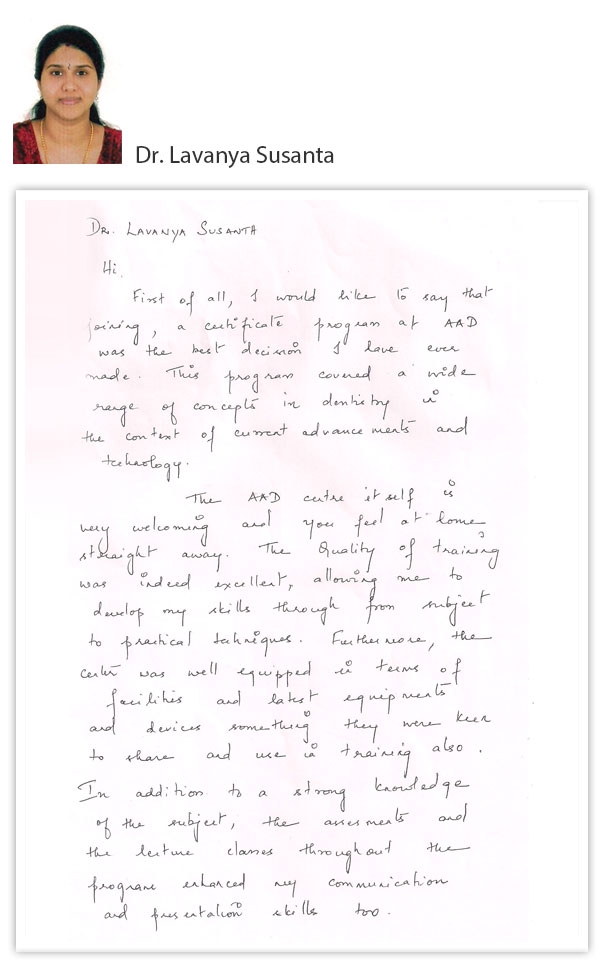 Dr. Lavanya Susanta
DR. LAVANYA SUSANTA
Hi.
First of all, I would like to say that
joining, a certificate program at AAD
was the best decision I have ever
made. This program covered a wide
range of concepts in dentistry in
the context of current advancements and
technology.
The AAD centre itself is
very welcoming and you feel at home
straight away. The Quality of training
was indeed excellent, allowing me to
develop my skills through from subject
to practical techniques. Furthermore, the
center was well equipped in terms of
facilities and latest equipments
and devices something they were keen
to share and use in training also.
In addition to a strong knowledge
of the subject, the assesments and
the lecture classes throughout the
program enhanced my communication
and presentation skills too.